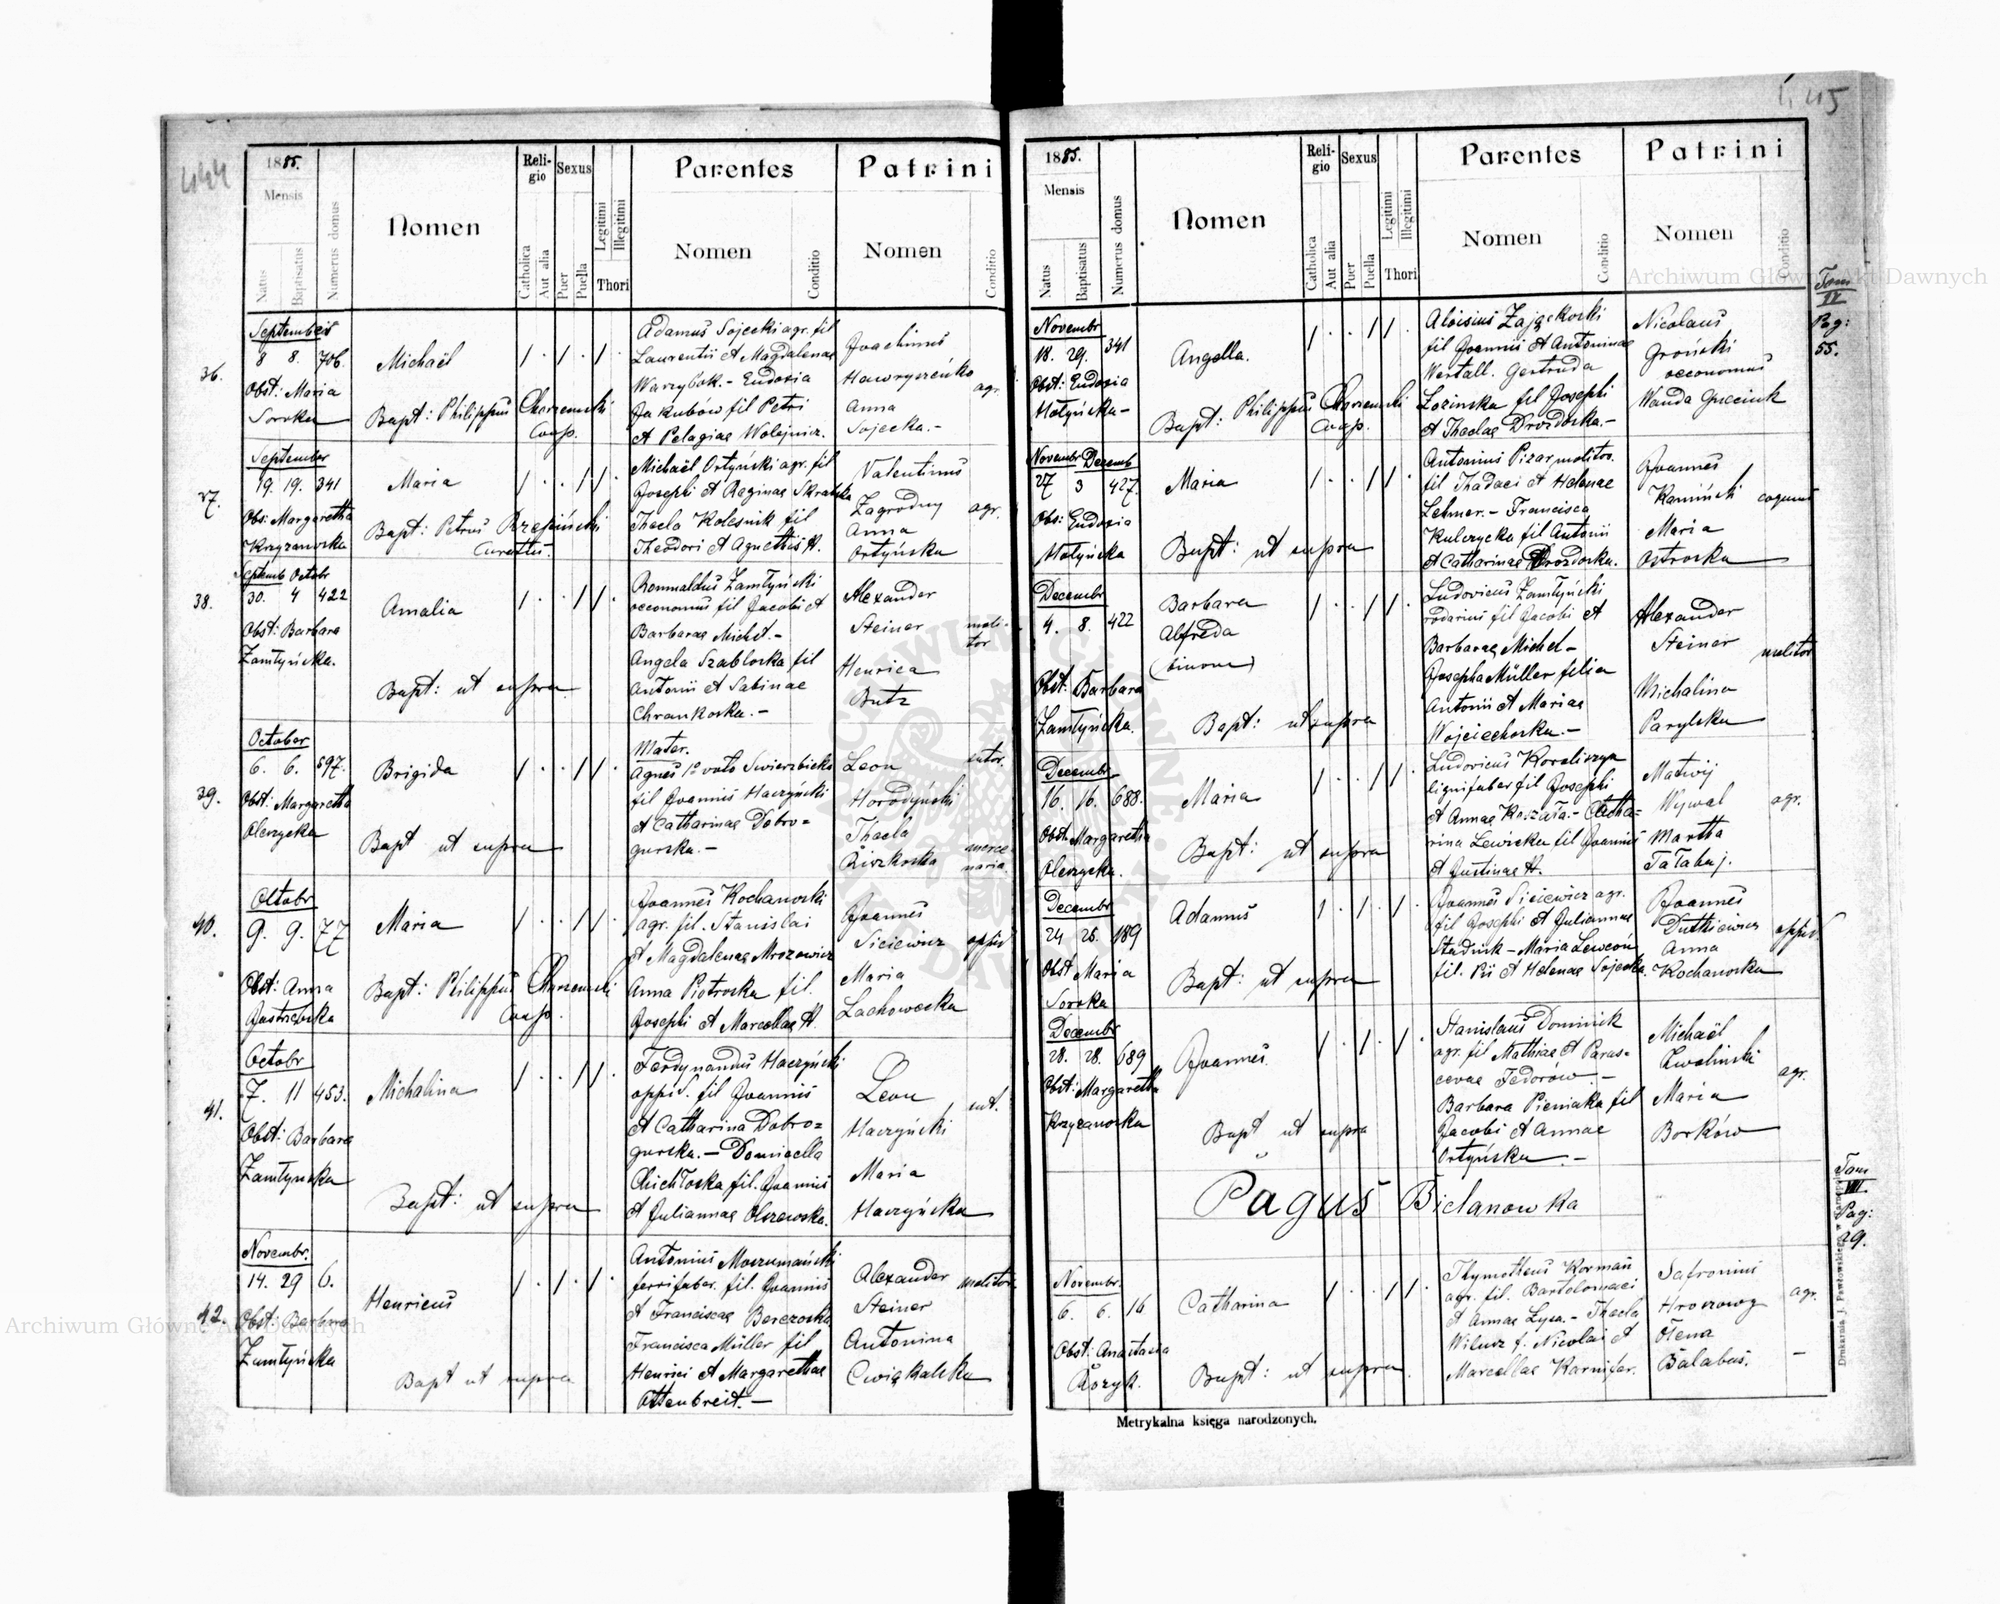 444
1885.
Mensis
Natus
Baptisatus
Numerus domus
Nomen
Religio
Catholica
Aut alia
Sexus
Puer
Puella
Legitimi
Illegitimi
Thori
Parentes
Nomen
Conditio
Patrini
Nomen
Conditio
36.
Septembris
8 8. 706.
Obst: Maria
Soroka
Michaël
Bapt: Philippus Charzewski
Coop.
Adamus Sojecki agr. fil
Laurentii et Magdalenae
Warzybok. - Eudoxia
Jakubów fil Petri
et Pelagiae Wolejnicz.
Joachimus
Hawryszeńko
agr.
Anna
Sojecka. -
37.
September
19. 19. 341
Obs: Margaretha
Krzyzanowska
Maria
Bapt: Petrus
Curatus.
Michaël Ortyński agr. fil
Josephi et Reginae
Thecla Kolesnik fil
Theodori et Agnethis H.
Valentinus
Zagrodny agr.
Anna
Ortyńska
38.
Septemb Octobr
30. 4 422
Obst: Barbara
Zamłyńska.
Amalia
Bapt: ut supra
Romualdus Zamłyński
oeconomus fil Jacobi et
Barbarae Michel. -
Angela Szablowska fil
Antonii et Sabinae
Chrankowska. -
Alexander
Steiner molitor
Henrica
Butz
39.
October
6. 6. 697.
Obst: Margaretha
Olenycka
Brigida
Bapt ut supra
Mater.
Agnes 1º voto Swierzbicka
fil Joannis Haczyński
et Catharinae Dobro=
gurska. -
Leon sutor.
Horodyński
Thecla
merce
naria
40.
Octobr
9. 9. 77
Obst: Anna
Jastrzębska
Maria
Bapt: Philippus Charzewski
Coop.
Joannes Kochanowski
agr. fil. Stanislai
et Magdalenae Mrozowicz
Anna Piotrowska fil.
Josephi et Marcellae H.
Joannes
Siciewicz oppid
Maria
Lachowecka
41.
Octobr
7. 11 453.
Obst: Barbara
Zamłyńska
Michalina
Bapt: ut supra
Ferdynandus Haczyński
oppid. fil Joannis
et Catharina Dobro=
gurska. - Domicella
fil. Joannis
et Juliannae Olszewska.
Leon
Haczyński sut.
Maria
Haczyńska
42.
Novembr.
14. 29 6.
Obst: Barbara
Zamłyńska
Henricus
Bapt ut supra
Antonius Moszumański
ferrifaber. fil. Joannis
et Franciscae Berezowska
Francisca Müller fil
Henrici et Margarethae
Ottenbreit. -
Alexander molitor.
Steiner
Antonina
Cwiąkalska
445
1885.
Mensis
Natus
Baptisatus
Numerus domus
Nomen
Religio
Catholica
Aut alia
Sexus
Puer
Puella
Legitimi
Illegitimi
Thori
Parentes
Nomen
Conditio
Patrini
Nomen
Conditio
Tom
IV
Pag:
55.
Novembr
18. 29. 341
Obst: Eudoxia
Hołyńska -
Angella.
Bapt: Philippus Charzewski
Coop.
Aloisius Zajączkowski
fil Joannis et Antoninae
Westall. Gertruda
Lozinska fil Josephi
et Theclae Drozdoska. -
Nicolaus
Groński
oeconomus
Wanda Gucciuk
Novembr Decemb
27 3 427.
Obs: Eudoxia
Hołyńska
Maria
Bapt: ut supra
Antonius Pizar molitor.
fil Thadaei et Helenae
Lehner. - Francisca
Kulczycka fil Antonii
et Catharinae Drozdoska.
Joannes
Kamiński coquus
Maria
Ostrowska
Decembr
4. 8. 422
Obst: Barbara
Zamłyńska.
Barbara
Alfreda
(binom)
Bapt: ut supra
Ludovicus Zamłyński
fil Jacobi et
Barbarae Michel -
Josepha Müller filia
Antonii et Mariae
Wojciechowska. -
Alexander
Steiner molitor
Michalina
Parylska
Decembr
16. 16. 688.
Obst: Margaretha
Olenycka.
Maria
Bapt: ut supra
Ludovicus
lignifaber fil Josephi
et Annae Koszała. - Catha-
rina Lewicka fil Joannis
et Justinae H.
Matwij
Wywal agr.
Martha
Tałabaj.
Decembr
24 26. 189
Obst Maria
Soroka
Adamus
Bapt: ut supra
Joannes Siciewicz agr.
fil Josephi et Juliannae
Stadnik - Maria Lewcóu
fil. Pii et Helenae Sojecka.
Joannes
Dutkiewicz oppid.
Anna
Kochanowska
Decembr
28. 28. 689
Obst: Margaretha
Krzyzanowska
Joannes.
Bapt ut supra
Stanislaus Dominik
agr. fil Mathiae et Paras-
cevae Fedorów. -
Barbara Pieniaka fil
Jacobi et Annae
Ortyńska. -
Michaël
Zwoliński
agr.
Maria
Borków
Pagus Bielanowka
Tom
VII.
Pag:
29.
Novembr.
6. 6. 16
Obst: Anastasia
Catharina
Bapt: ut supra
Thymotheus Korman
agr. fil. Bartolomaei
et Annae Lysa. - Thecla
f. Nicolai et
Marcellae Karnifar.
Safronius
agr.
Olena
Balabas. -
Metrykalna księga narodzonych.
Archiwum Główne Akt Dawnych
Archiwum Główne Akt Dawnych